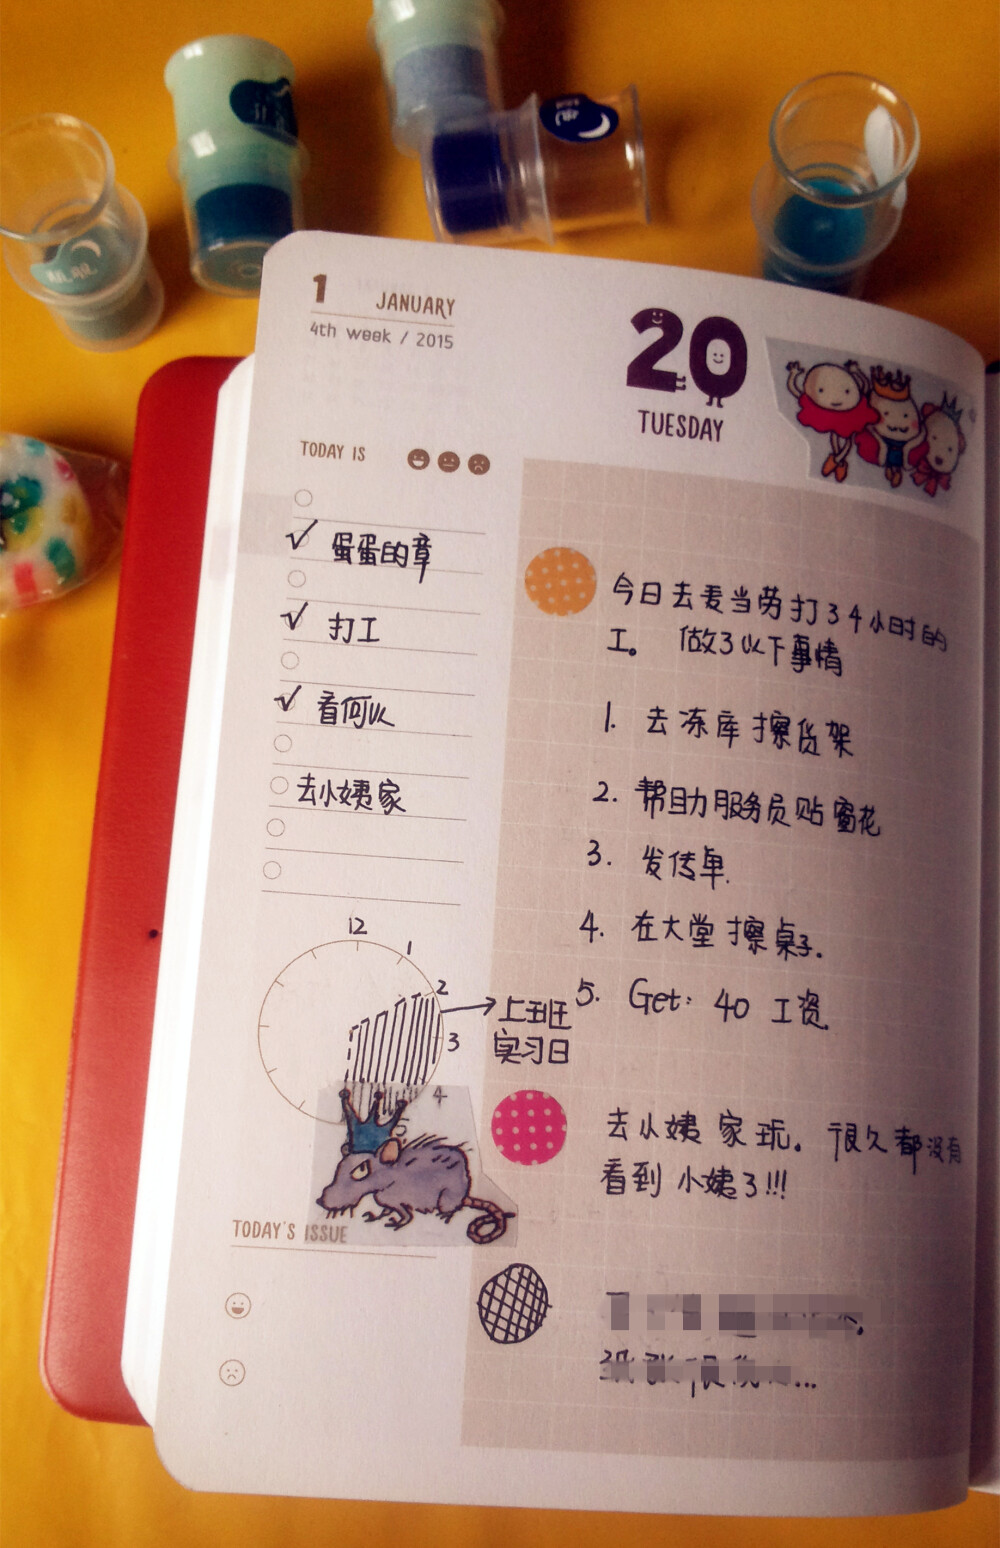 1 JANUARY
4th week / 2015
20
TUESDAY
TODAY IS
蛋蛋的章
打工
看何以
去小姨家
12
1
2
3
4
上班
实习日
TODAY'S ISSUE
今日去麦当劳打了4小时的
工。 做了以下事情
1. 去冻库擦货架
2. 帮助服务员贴窗花
3. 发传单.
4. 在大堂擦桌子.
5. Get: 40 工资.
去小姨家玩。很久都没有
看到小姨了!!!